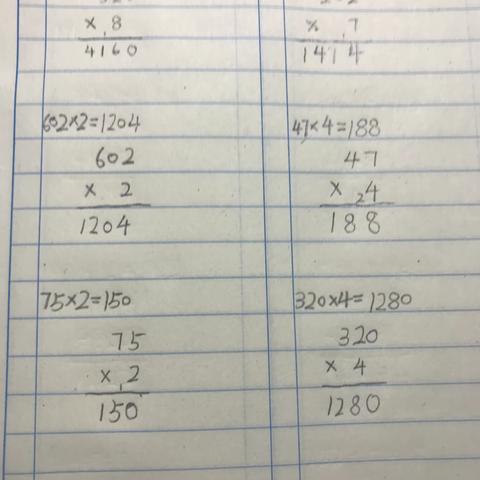 × 8
4160
× 7
1414
602×2=1204
602
× 2
1204
47×4=188
47
× 24
188
75×2=150
75
× 12
150
320×4=1280
320
× 4
1280